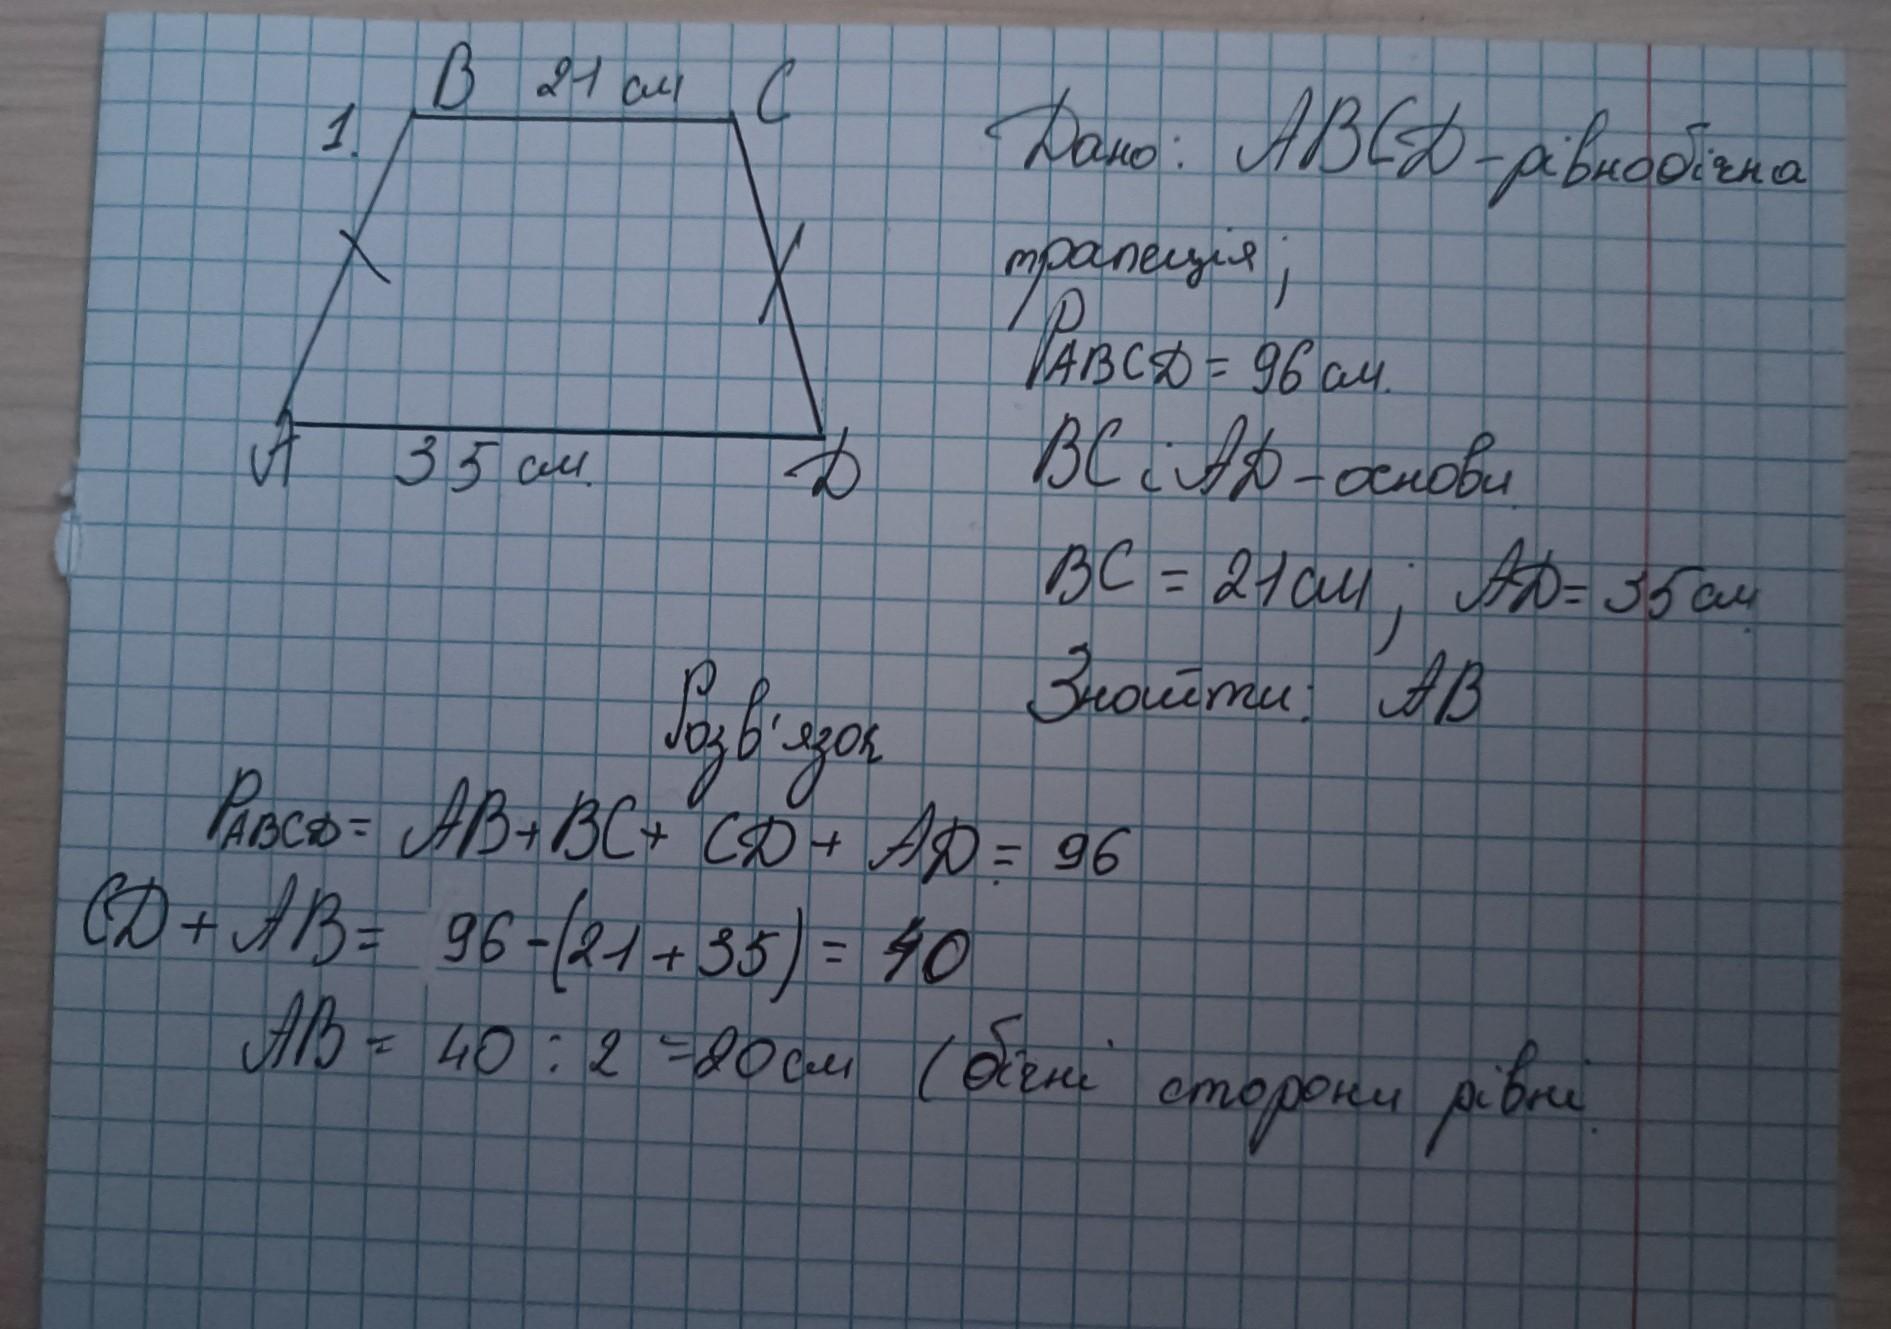 1.
B 21 см C
A 35 см. D
Дано: ABCD - рівнобічна
трапеція;
PABCD = 96 см.
BC і AD - основи
BC = 21 см; AD = 35 см
Знайти: AB
Розв'язок
PABCD = AB + BC + CD + AD = 96
CD + AB = 96 - (21 + 35) = 40
AB = 40 : 2 = 20 см (бічні сторони рівні.